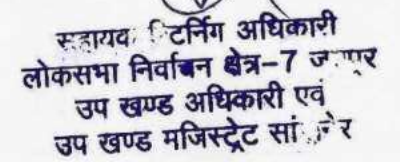 सहायक रिटर्निग अधिकारी
लोकसभा निर्वाचन क्षेत्र-7 जयपुर
उप खण्ड अधिकारी एवं
उप खण्ड मजिस्ट्रेट